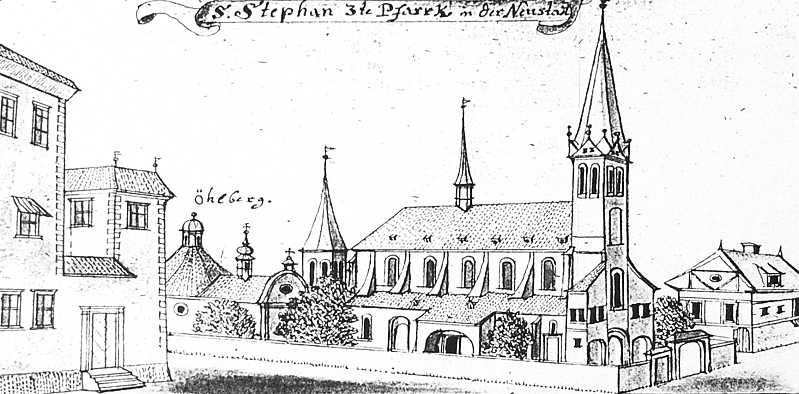 S. Stephan 3te Pfarrk in der Neustat
öhlberg.